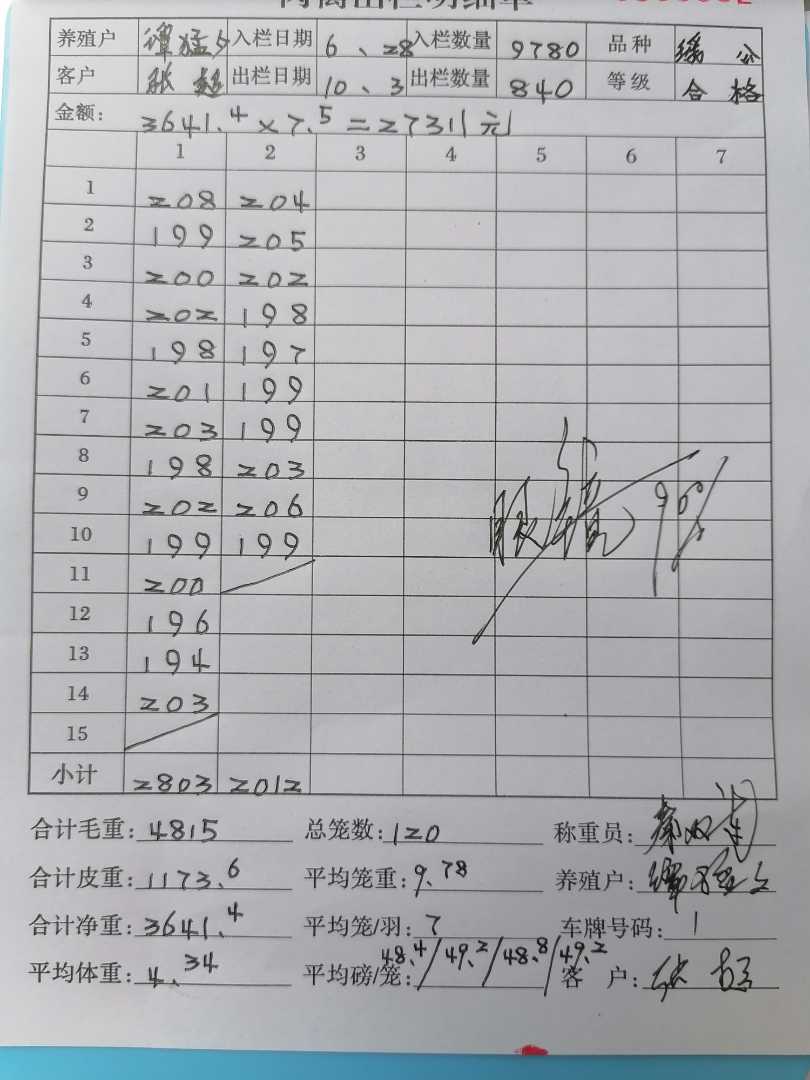 养殖户 谭猛 入栏日期 6、28 入栏数量 9780 品种
客户 张超 出栏日期 10、3 出栏数量 840 等级 合格
金额: 3641.4×7.5=27311元
1 2 3 4 5 6 7
1 208 204
2 199 205
3 200 202
4 202 198
5 198 197
6 201 199
7 203 199
8 198 203
9 202 206
10 199 199
11 200
12 196
13 194
14 203
15
小计 2803 2012
合计毛重: 4815 总笼数: 120 称重员:
合计皮重: 1173.6 平均笼重: 9.78 养殖户:
合计净重: 3641.4 平均笼/羽: 7 车牌号码: 1
平均体重: 4.34 平均磅/笼: 48.4/49.2/48.8/49.2 客 户: 张超